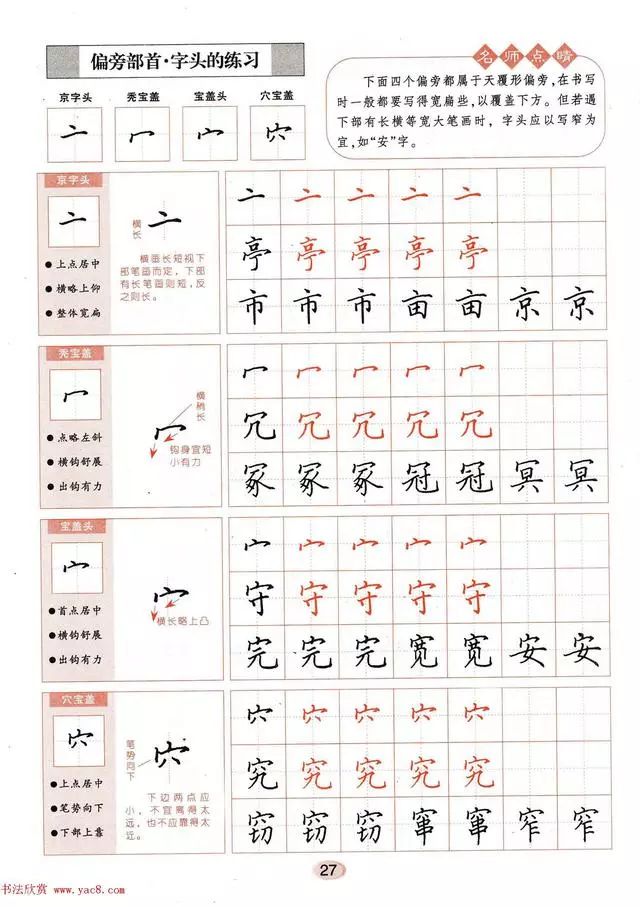 偏旁部首·字头的练习
名师点睛
京字头 秃宝盖 宝盖头 穴宝盖
亠 冖 宀 穴
下面四个偏旁都属于天覆形偏旁,在书写
时一般都要写得宽扁些,以覆盖下方。但若遇
下部有长横等宽大笔画时,字头应以写窄为
宜,如“安”字。
京字头
亠
●上点居中
●横略上仰
●整体宽扁
横长
亠
横画长短视下
部笔画而定,下部
有长笔画则短,反
之则长。
亠 亠 亠 亠 亠
亭 亭 亭 亭 亭
市 市 市 亩 亩 京 京
秃宝盖
冖
●点略左斜
●横钩舒展
●出钩有力
横稍长
冖
钩身宜短
小有力
冖 冖 冖 冖 冖
冗 冗 冗 冗 冗
冢 冢 冢 冠 冠 冥 冥
宝盖头
宀
●首点居中
●横钩舒展
●出钩有力
宀
横长略上凸
宀 宀 宀 宀 宀
守 守 守 守 守
完 完 完 宽 宽 安 安
穴宝盖
穴
●上点居中
●笔势向下
●下部上靠
笔势向下
穴
下边两点应
小,不宜离得太
远,也不应靠得太
近。
穴 穴 穴 穴 穴
究 究 究 究 究
窃 窃 窜 窜 窄 窄
27
书法欣赏 www.yac8.com